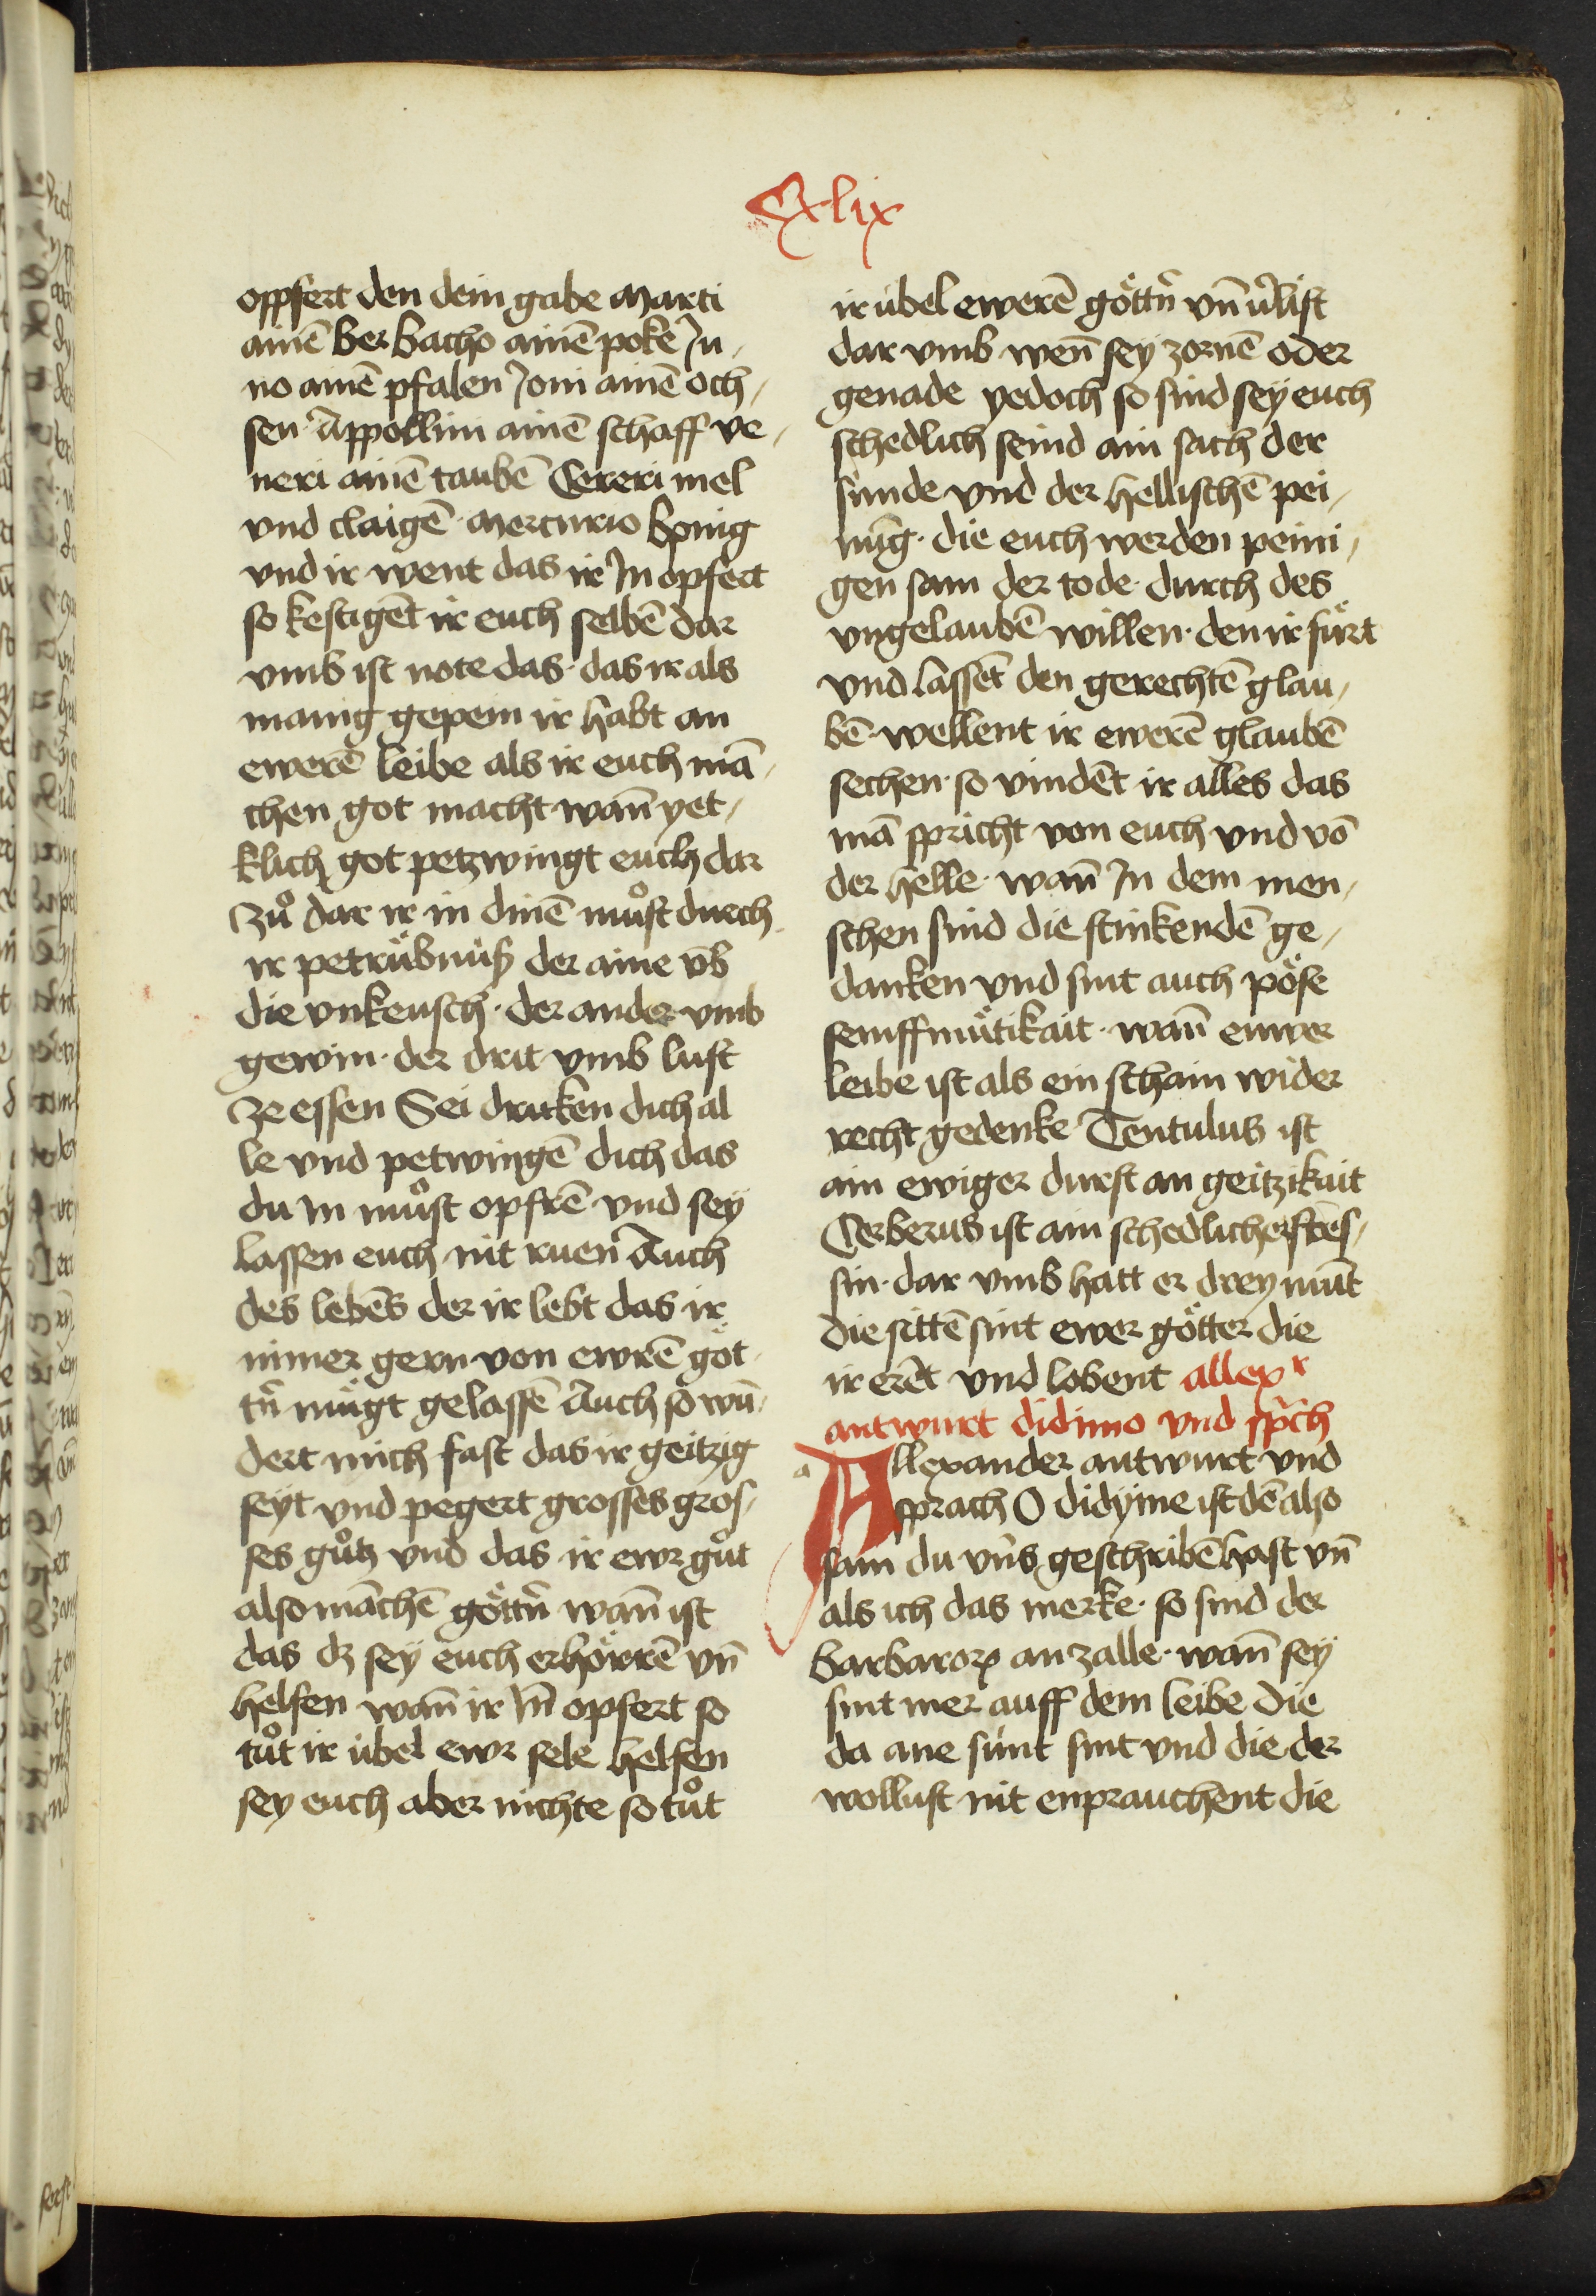 Cxlix
oppfert den dein gabe Marti
ainē ber bacho ainē poke Ju¬
no ainē pfalen Joui ainē och¬
sen Appollini ainē schaff ve¬
neri ainē taubē Cereri mel
vnd claigē· Mercurio honig
vnd ir went das ir In opfert
so kestigēt ir euch selbē dar
vmb ist note das· das ir als
manig gepein ir habt an
ewerē leibe als ir euch mā¬
chen got macht wañ yet¬
klich got petzwingt euch dar
zů dar ir in dinē můst durch
ir petrübnüß der aine vb
die vnkeusch· der ander vmb
gewin· der drit vmb lust
ze essen Sei druken dich al
le vnd petwingē dich das
du In můst opfrē vnd sey
lassen euch nit ruen Auch
des lebēs der ir lebt das ir
nimer gern von ewrē göt
tñ mügt gelassē Auch so wū¬
dert mich fast das ir geitzig
seyt vnd pegert grosses gros¬
ses gůtz vnd das ir ewr gůt
also māchē göttñ wañ ist
das dz sey euch erhörrē vñ
helfen wañ ir In opfert so
tůt ir übel ewr sele helfen
sey euch aber nichte so tůt
ir übel ewerē göttñ vñ v̉list
dar vmb weñ sey zornē oder
genade yedoch so sind sey euch
schedlich seind ain sach der
sünde vnd der hellischē pei¬
nūg· die euch werden peini¬
gen sam der tode durch des
vngelaubē willen· den ir fürt
vnd lassēt den gerechtē glau¬
bē· wellent ir ewerē glaubē
sechen· so vindēt ir alles das
mā spricht von euch vnd vō
der helle· wañ In dem men¬
schen sind die stinkendē ge¬
danken vnd sint auch pöse
semffmütikait· wañ ewer
leibe ist als ein schain wider
recht gedenke Tentulus ist
ain ewiger durst an geitzikait
Cerberus ist ain schedlicher fres¬
sin· dar vmb hatt er drey münt
die sittē sint ewer götter die
ir erēt vnd lobent allexr
antwurt didimo vnd sprich
a
Allexander antwurt vnd
sprach O didyme ist dē also
sam du vñs geschribē hast vñ
als ich das merke· so sind der
barbaroꝝ an zalle· wañ sey
sint mer auff dem leibe die
da ane sünt sint vnd die der
wollust nit enprauchent die